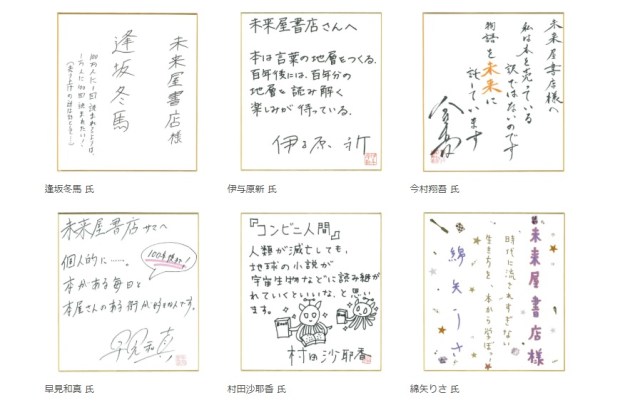 未来屋書店様
逢坂冬馬
逢坂冬馬 氏
未来屋書店さんへ
本は言葉の地層をつくる。
百年後には、百年分の
地層を読み解く
楽しみが待っている。
伊与原 新
伊与原新 氏
未来屋書店様へ
私は本を売っている
訳ではないのです
物語を未来に
託しています
今村翔吾 氏
未来屋書店サマへ
100周年!!
個人的に……。
本がある毎日と
本屋さんのある街が好きです。
早見和真
早見和真 氏
『コンビニ人間』
人類が滅亡しても、
地球の小説が
宇宙生物などに読み継が
れていくといいな、と思い
ます。
村田沙耶香
村田沙耶香 氏
未来屋書店様
時代に流されすぎない
生き方を、本から学ぼう。
綿矢りさ
綿矢りさ 氏